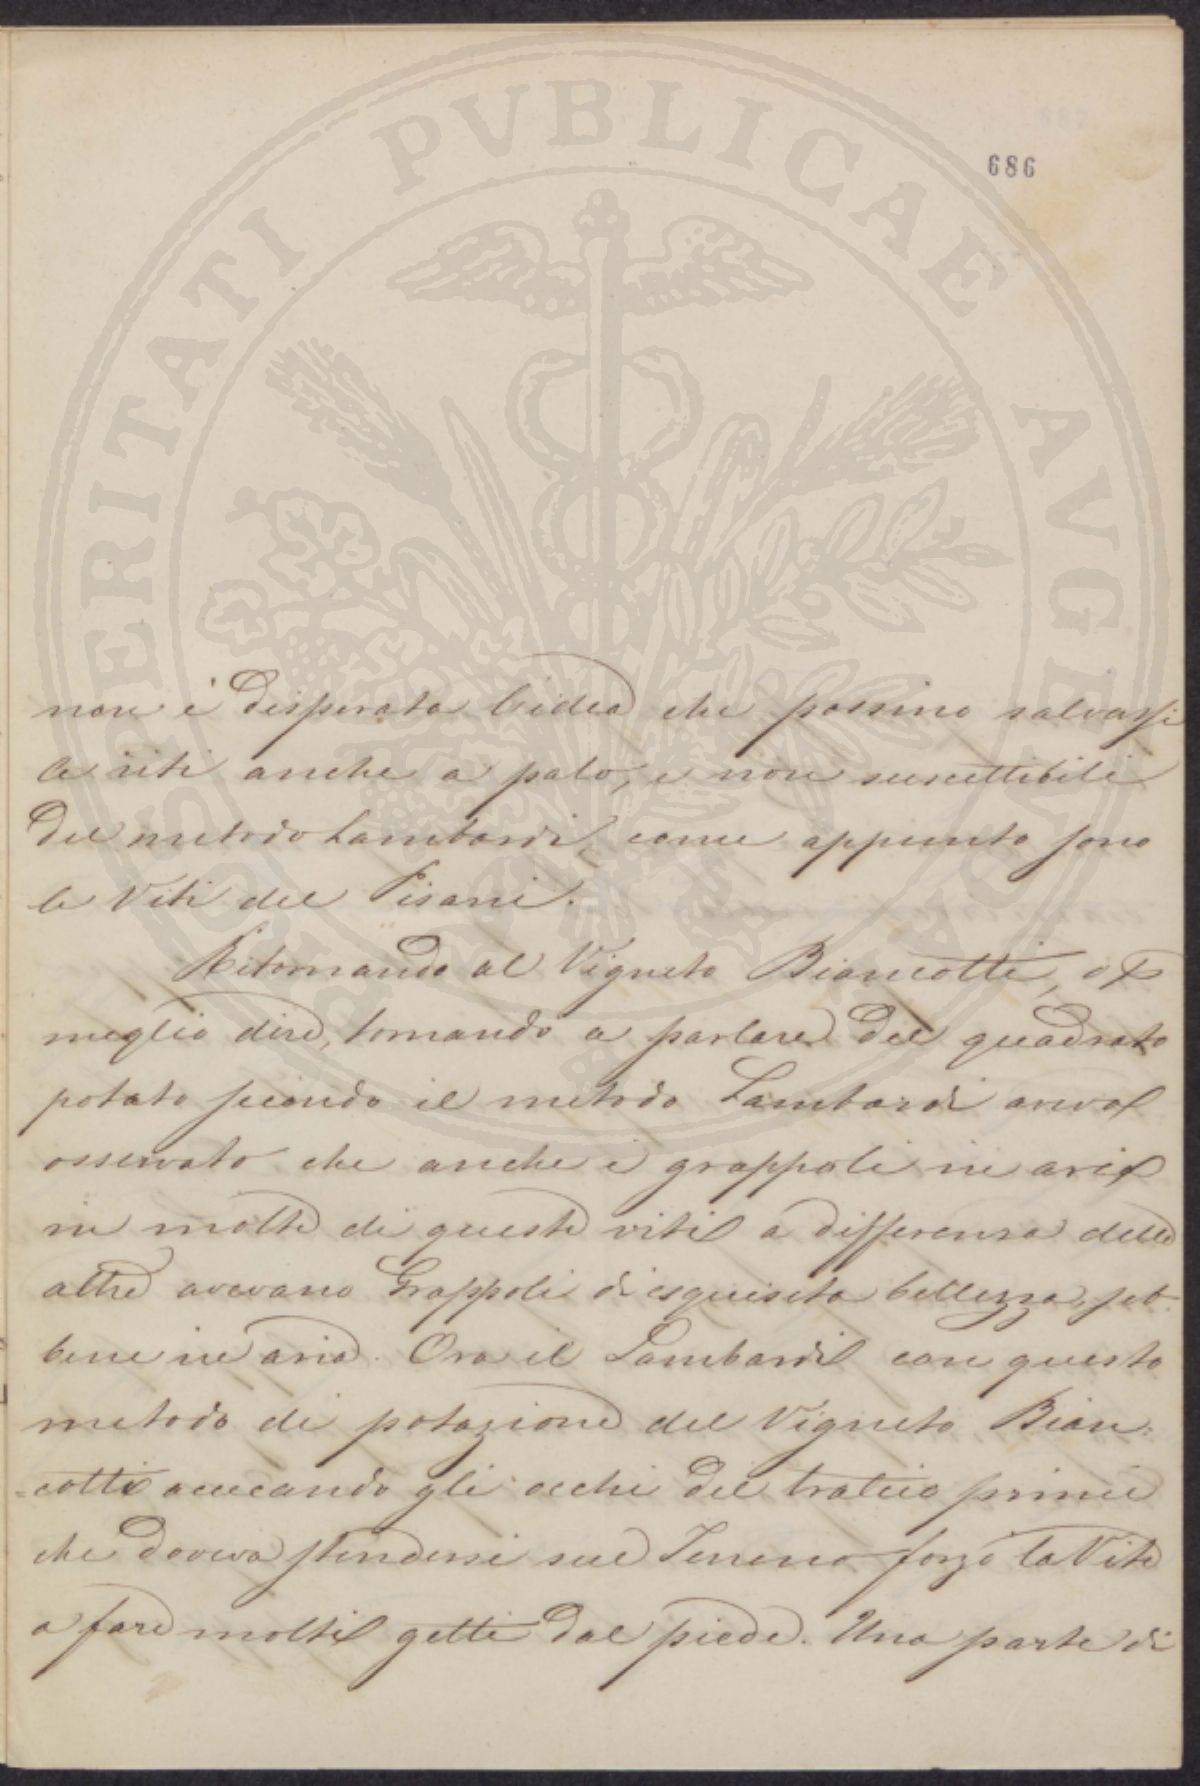 PROSPERITATI PVBLICAE AVGENDAE
686
non è disperata l'idea che possino salvarsi
le viti anche a palo, e non suscettibili
del metodo Lambardi, come appunto sono
le Viti del Pisani.
Ritornando al Vigneto Biancotti, o
meglio dire, tornando a parlare del quadrato
potato secondo il metodo Lambardi aveva
osservato che anche i grappoli in aria
in molte di queste viti a differenza delle
altre avevano Grappoli di esquisita bellezza, seb-
bene in aria. Ora il Lambardi con questo
metodo di potazione del Vigneto Bian=
=cotti accecando gli occhi del tralcio prima
che doveva stendersi sul Terreno forzò la Vite
a fare molti getti dal piede. Una parte di